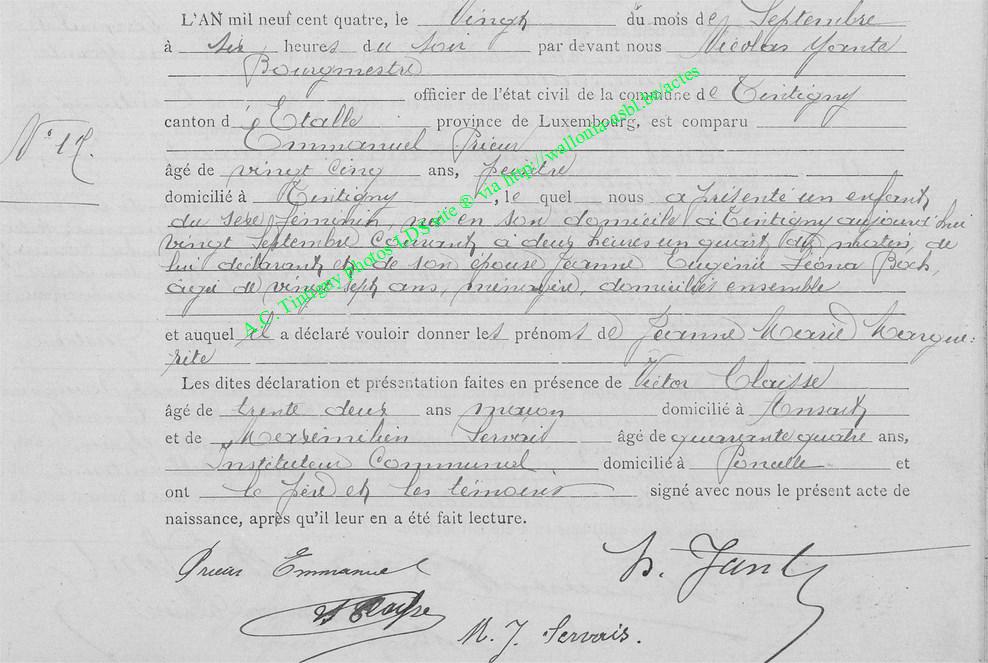 L'AN mil neuf cent quatre, le Vingt du mois de Septembre
à six heures du soir par devant nous Nicolas Yante
Bourgmestre
officier de l'état civil de la commune de Tintigny
canton d'Etalle province de Luxembourg, est comparu
Emmanuel Prieur
N° 17.
âgé de vingt cinq ans, peintre
domicilié à Tintigny, le quel nous a présenté un enfant
du sexe féminin, né en son domicile à Tintigny aujourd'hui
vingt Septembre courant, à deux heures un quart du matin, de
lui déclarant et de son épouse Jeanne Eugénie Léona Bock,
âgée de vingt sept ans, ménagère, domiciliés ensemble
et auquel il a déclaré vouloir donner les prénoms de Jeanne Marie Margue=
rite
Les dites déclaration et présentation faites en présence de Victor Claisse
âgé de trente deux ans maçon domicilié à Ansart
et de Maximilien Servais âgé de quarante quatre ans,
Instituteur Communal domicilié à et
ont le père et les témoins signé avec nous le présent acte de
naissance, après qu'il leur en a été fait lecture.
Prieur Emmanuel
N. Yante
V Claisse
M. J. Servais.
A.C. Tintigny Photos LDS site ® via http://wallonia-asbl.be/actes